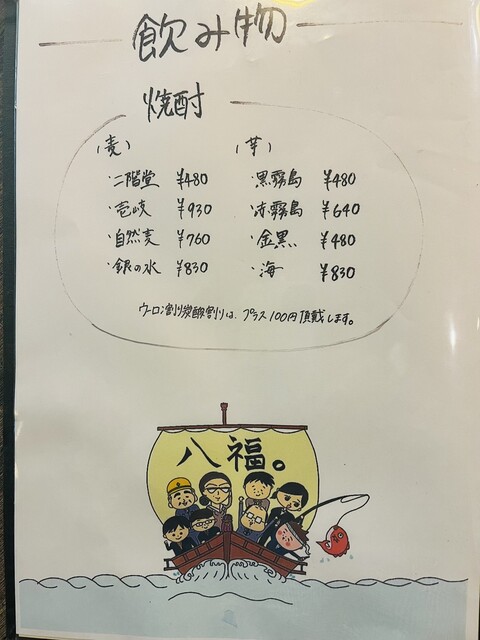 飲み物
焼酎
(麦)
・二階堂 ¥480
・壱岐 ¥930
・自然麦 ¥760
・銀の水 ¥830
(芋)
・黒霧島 ¥480
・赤霧島 ¥640
・金黒 ¥480
・海 ¥830
ウーロン割り炭酸割りは、プラス100円頂戴します。
八福。